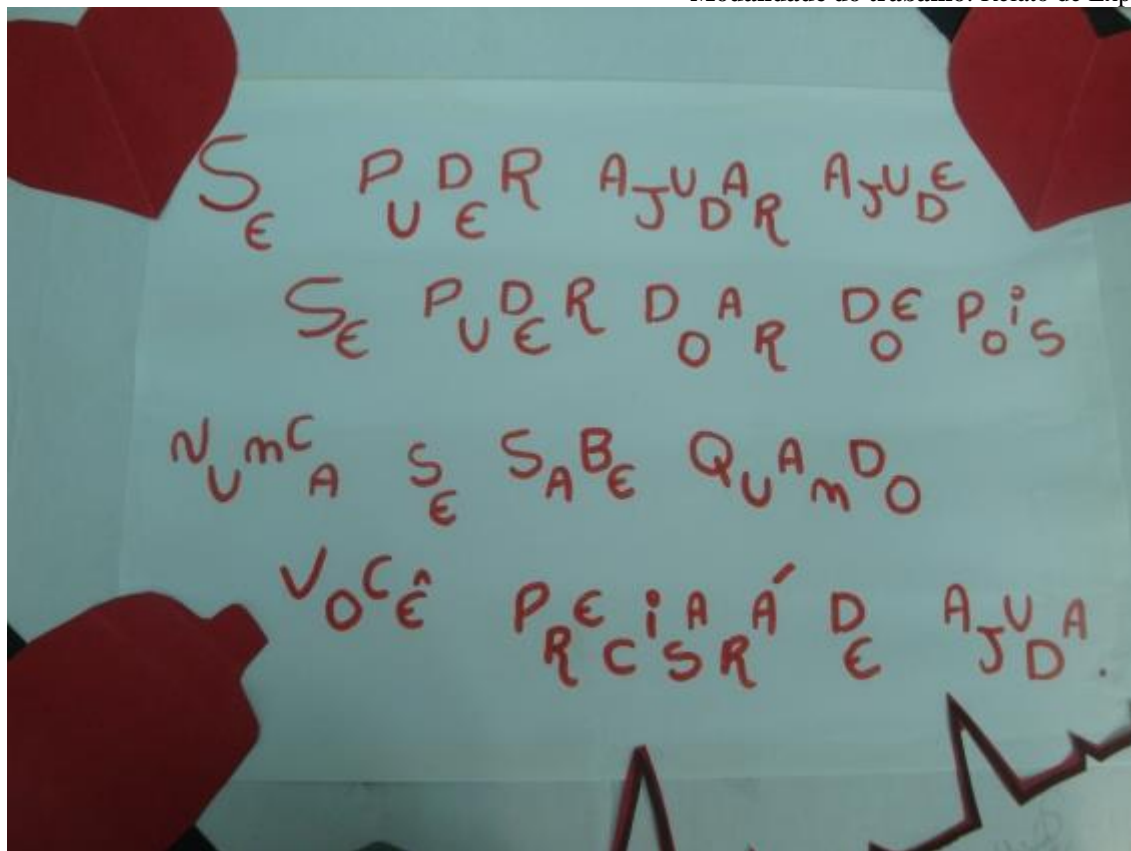 SE PUDER AJUDAR AJUDE
SE PUDER DOAR DOE POIS
NUNCA SE SABE QUANDO
VOCÊ PRECISARÁ DE AJUDA.